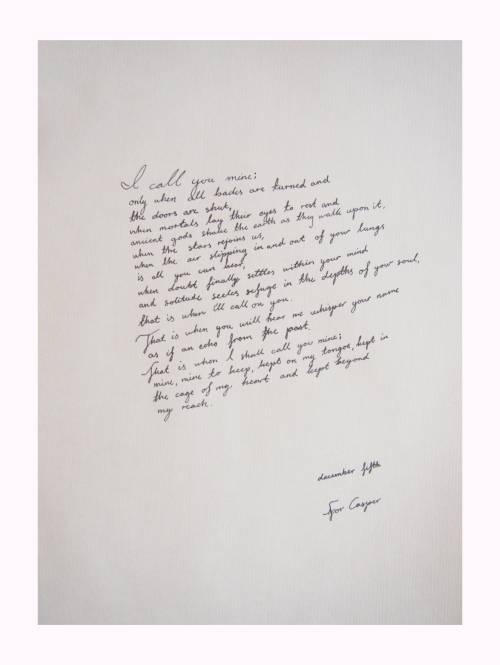 I call you mine;
only when all backs are turned and
the doors are shut,
when mortals lay their eyes to rest and
ancient gods shake the earth as they walk upon it,
when the stars rejoins us,
when the air slipping in and out of your lungs
is all you can hear,
when doubt finally settles within your mind
and solitude seeks refuge in the depths of your soul,
that is when I'll call on you.
That is when you will hear me whisper your name
as if an echo from the past.
That is when I shall call you mine;
mine, mine to keep, kept on my tongue, kept in
the cage of my heart and kept beyond
my reach.
december fifth
Igor Casper